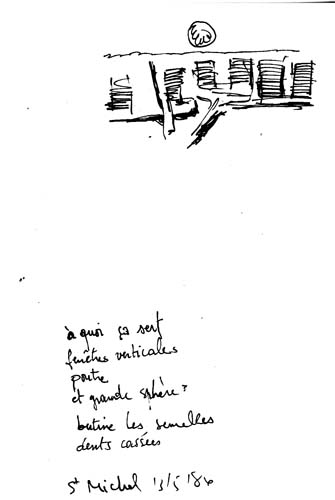 à quoi ça sert
fenêtres verticales
porte
et grande sphère?
butine les semelles
dents cassées
St Michel 13/5/86